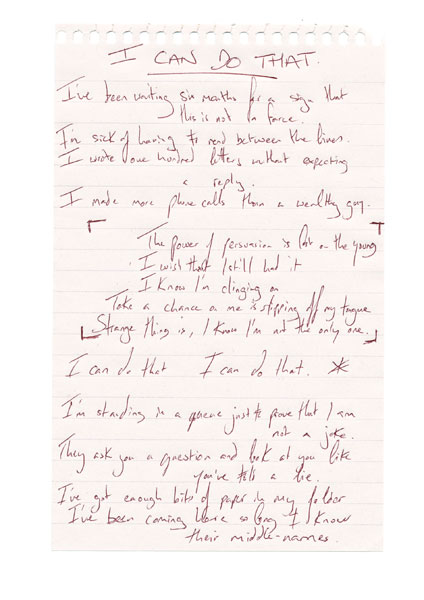 I CAN DO THAT.
I've been waiting six months for a sign that
this is not a farce.
I'm sick of having to read between the lines.
I wrote one hundred letters without expecting
a reply.
I made more phone calls than a wealthy guy.
The power of persuasion is lost on the young
I wish that I still had it
I know I'm clinging on
Take a chance on me is slipping off my tongue
Strange thing is, I know I'm not the only one.
I can do that I can do that. *
I'm standing in a queue just to prove that I am
not a joke.
They ask you a question and look at you like
you've told a lie.
I've got enough bits of paper in my folder
I've been coming here so long I know
their middle-names.